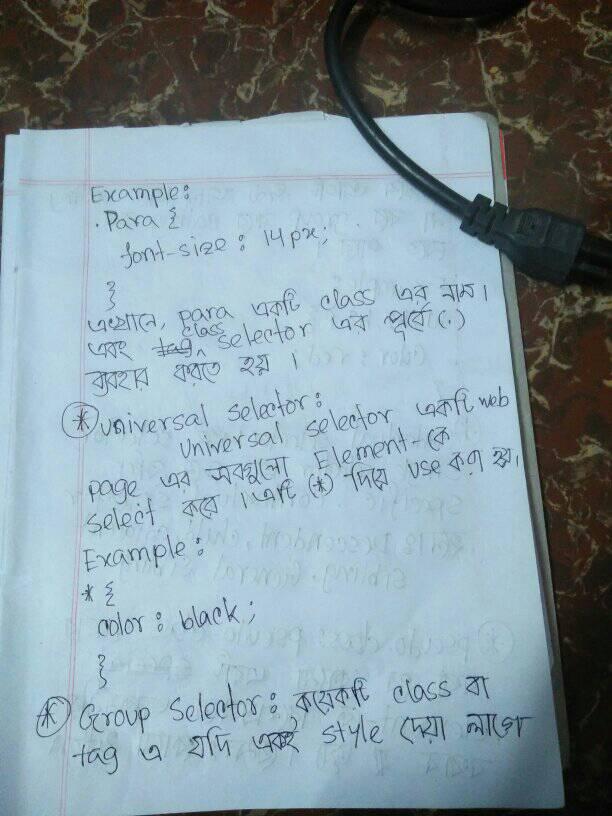 Example:
.Para {
font-size: 14px;
}
এখানে, para একটি class এর নাম।
এবং class selector এর পূর্বে (.)
ব্যবহার করতে হয়।
* Universal Selector:
Universal selector একটি web
page এর সবগুলো Element-কে
select করে। এটি (*) দিয়ে use করা হয়।
Example:
* {
color: black;
}
* Group Selector: কয়েকটি class বা
tag এ যদি একই style দেয়া লাগে